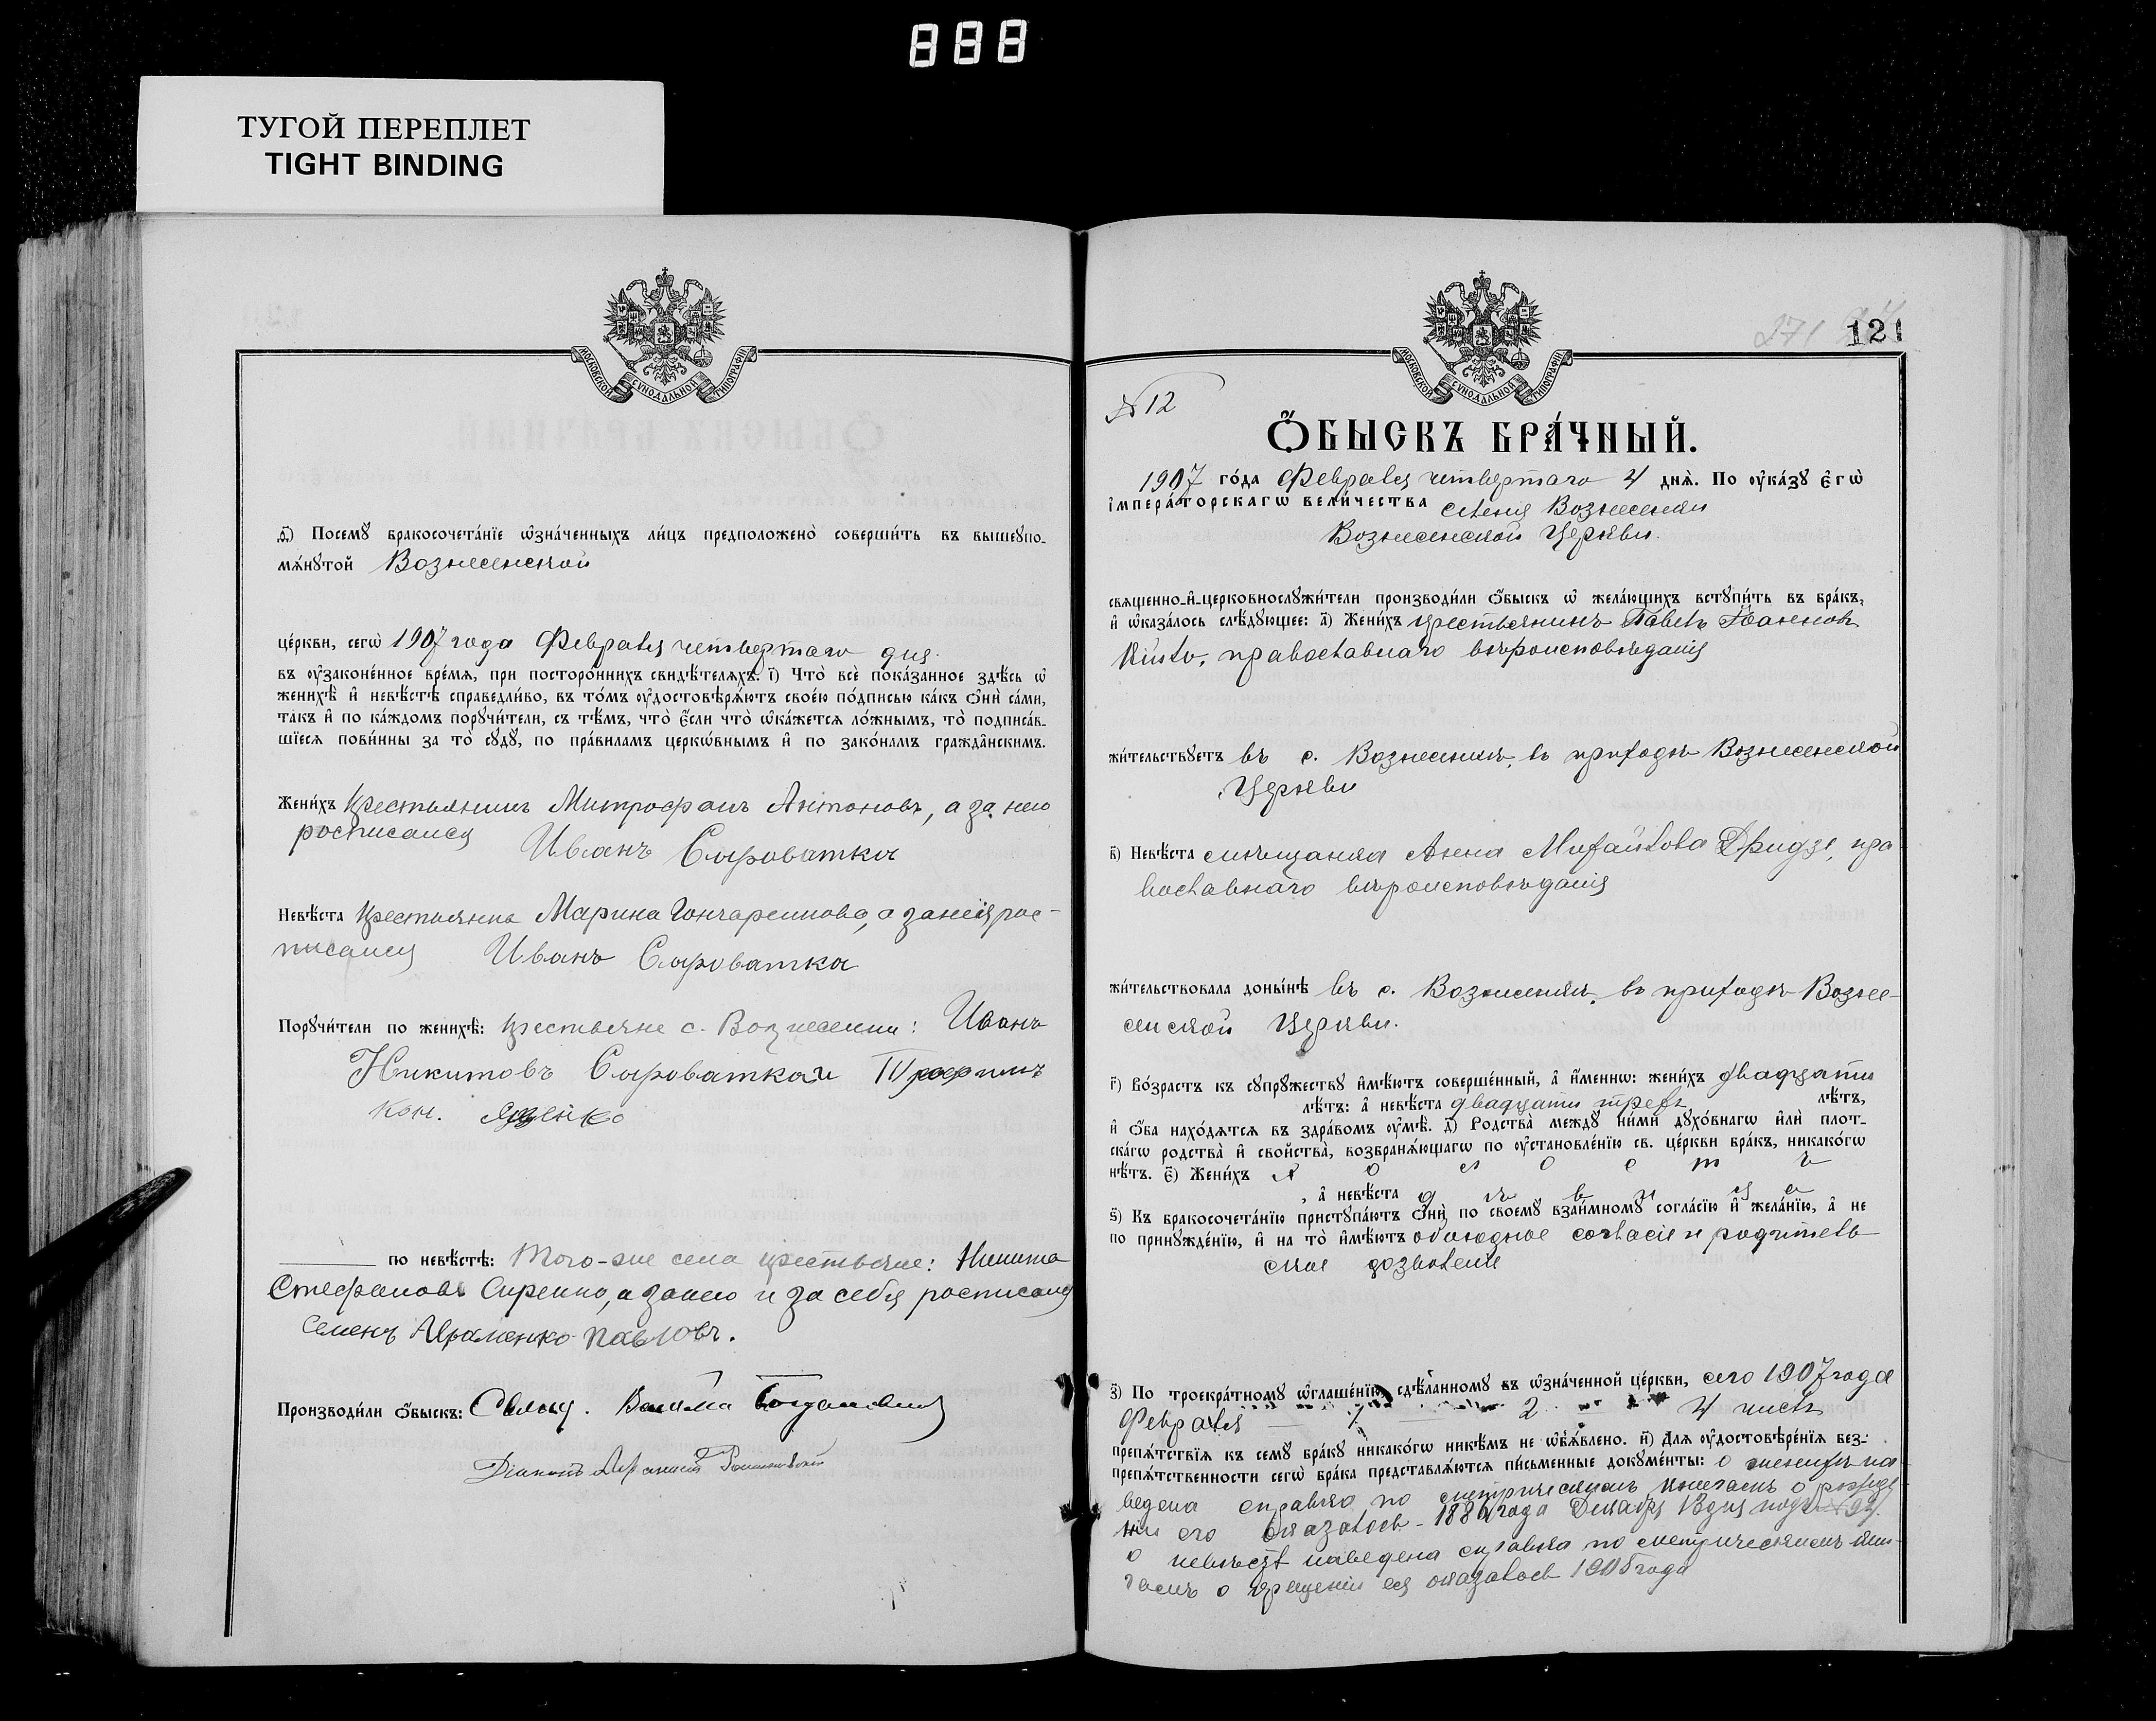 888
ТУГОЙ ПЕРЕПЛЕТ
TIGHT BINDING
МОСКОВСКОЙ СѴНОДАЛЬНОЙ ТИПОГРАФІИ
д҃і) Посемꙋ̀ бракосочета́нїе ѡ҆зна́ченныхъ ли́цъ предположено̀ соверши́ть въ вышеꙋпо-
мѧ́нꙋтой Вознесенской
це́ркви, сегѡ̀ 1907 года Февраля четвертаго дня.
въ ᲂу҆законе́нное вре́мѧ, при посторо́ннихъ свидѣ́телѧхъ. і҃) Что̀ всѐ пока́занное здѣ́сь ѡ҆
женихѣ̀ и҆ невѣ́стѣ справедли́во, въ то́мъ ᲂу҆достовѣрѧ́ютъ свое́ю по́дписью ка́къ ѻ҆нѝ са́ми,
та́къ и҆ по ка́ждомъ порꙋчи́тели, съ тѣ́мъ, что̀ є҆́сли что̀ ѡ҆ка́жетсѧ ло́жнымъ, то̀ подписа́в-
шїесѧ пови́нны за то̀ сꙋдꙋ̀, по пра́виламъ церко́внымъ и҆ по зако́намъ гражда̂нскимъ.
Жени́хъ Крестьянинъ Митрофанъ Антоновъ, а за него
росписался Иванъ Сыроватка
Невѣ́ста Крестьянка Марина Гончаренкова, а за нея рос-
писался Иванъ Сыроватка
Порꙋчи́тели по женихѣ̀: Крестьяне с. Вознесенки: Иванъ
Никитовъ Сыроватка и Трофимъ
Кон. Яценко
по невѣ́стѣ: Того-же села крестьяне: Никита
Стефановъ Сиренко, а за него и за себя росписался
Семенъ Авраменко Павловъ.
Производи́ли ѻ҆́быскъ: Свящ.
Діаконъ
121
271
№ 12
МОСКОВСКОЙ СѴНОДАЛЬНОЙ ТИПОГРАФІИ
Ѻ҆́БЫСКЪ БРА́ЧНЫЙ.
1907 го́да Февраля четвертаго 4 днѧ̀. По ᲂу҆ка́зꙋ є҆гѡ̀
і҆мпера́торскагѡ вели́чества села Вознесенки
Вознесенской Церкви.
свѧще́нно-и҆-церковнослꙋжи́тели производи́ли ѻ҆́быскъ ѡ҆ жела́ющихъ встꙋпи́ть въ бра́къ,
и҆ ѡ҆каза́лось слѣ́дꙋющее: а҃) Жени́хъ крестьянинъ Павелъ Іоанновъ
православнаго вѣроисповѣданія
жи́тельствꙋетъ въ с. Вознесенкѣ, въ приходѣ Вознесенской
Церкви
в҃) Невѣ́ста мѣщанка Анна Михайлова Дридзе, пра
вославнаго вѣроисповѣданія
жи́тельствовала доны́нѣ въ с. Вознесенкѣ, въ приходѣ Вознее-
сенской Церкви.
г҃) Во́зрастъ къ сꙋпрꙋ́жествꙋ и҆мѣ́ютъ соверше́нный, а҆ и҆́меннѡ: жени́хъ двадцати
лѣ́тъ: а҆ невѣ́ста двадцати трехъ лѣ́тъ,
и҆ ѻ҆́ба нахо́дѧтсѧ въ здра́вомъ ᲂу҆мѣ̀. д҃) Родства̀ междꙋ̀ ни́ми дꙋхо́внагѡ и҆лѝ плот-
ска́гѡ родства̀ и҆ сво́йства, возбранѧ́ющагѡ по ᲂу҆становле́нїю св. це́ркви бра́къ, никако́гѡ
нѣ́тъ. є҃) Жени́хъ холостъ
, а҆ невѣ́ста дѣвица
ѕ҃) Къ бракосочета́нїю пристꙋпа́ютъ ѻ҆нѝ по своемꙋ̀ взаи́мномꙋ согла́сїю и҆ жела́нїю, а҆ не
по принꙋжде́нїю, и҆ на то̀ и҆мѣ́ютъ обоюдное согласіе и родитель
ское дозволеніе
з҃) По троекра́тномꙋ ѡ҆глаше́нїю, сдѣ́ланномꙋ въ ѡ҆зна́ченной це́ркви, сего 1907 года
Февраля — 1 — 2 4 числъ
препѧ́тствїѧ къ семꙋ̀ бра́кꙋ никако́гѡ никѣ́мъ не ѡ҆б̾ѧ́влено. и҃) Длѧ ᲂу҆достовѣре́нїѧ без-
препѧ́тственности сегѡ̀ бра́ка представлѧ́ютсѧ пи́сьменные докꙋме́нты: о женихѣ на
ведена справка по метрическимъ книгамъ о рожде
ніи его оказалось - года Декабря дня подъ №
о невѣстѣ наведена справка по метрическимъ кни-
гамъ о крещеніи ея оказалось 1905 года